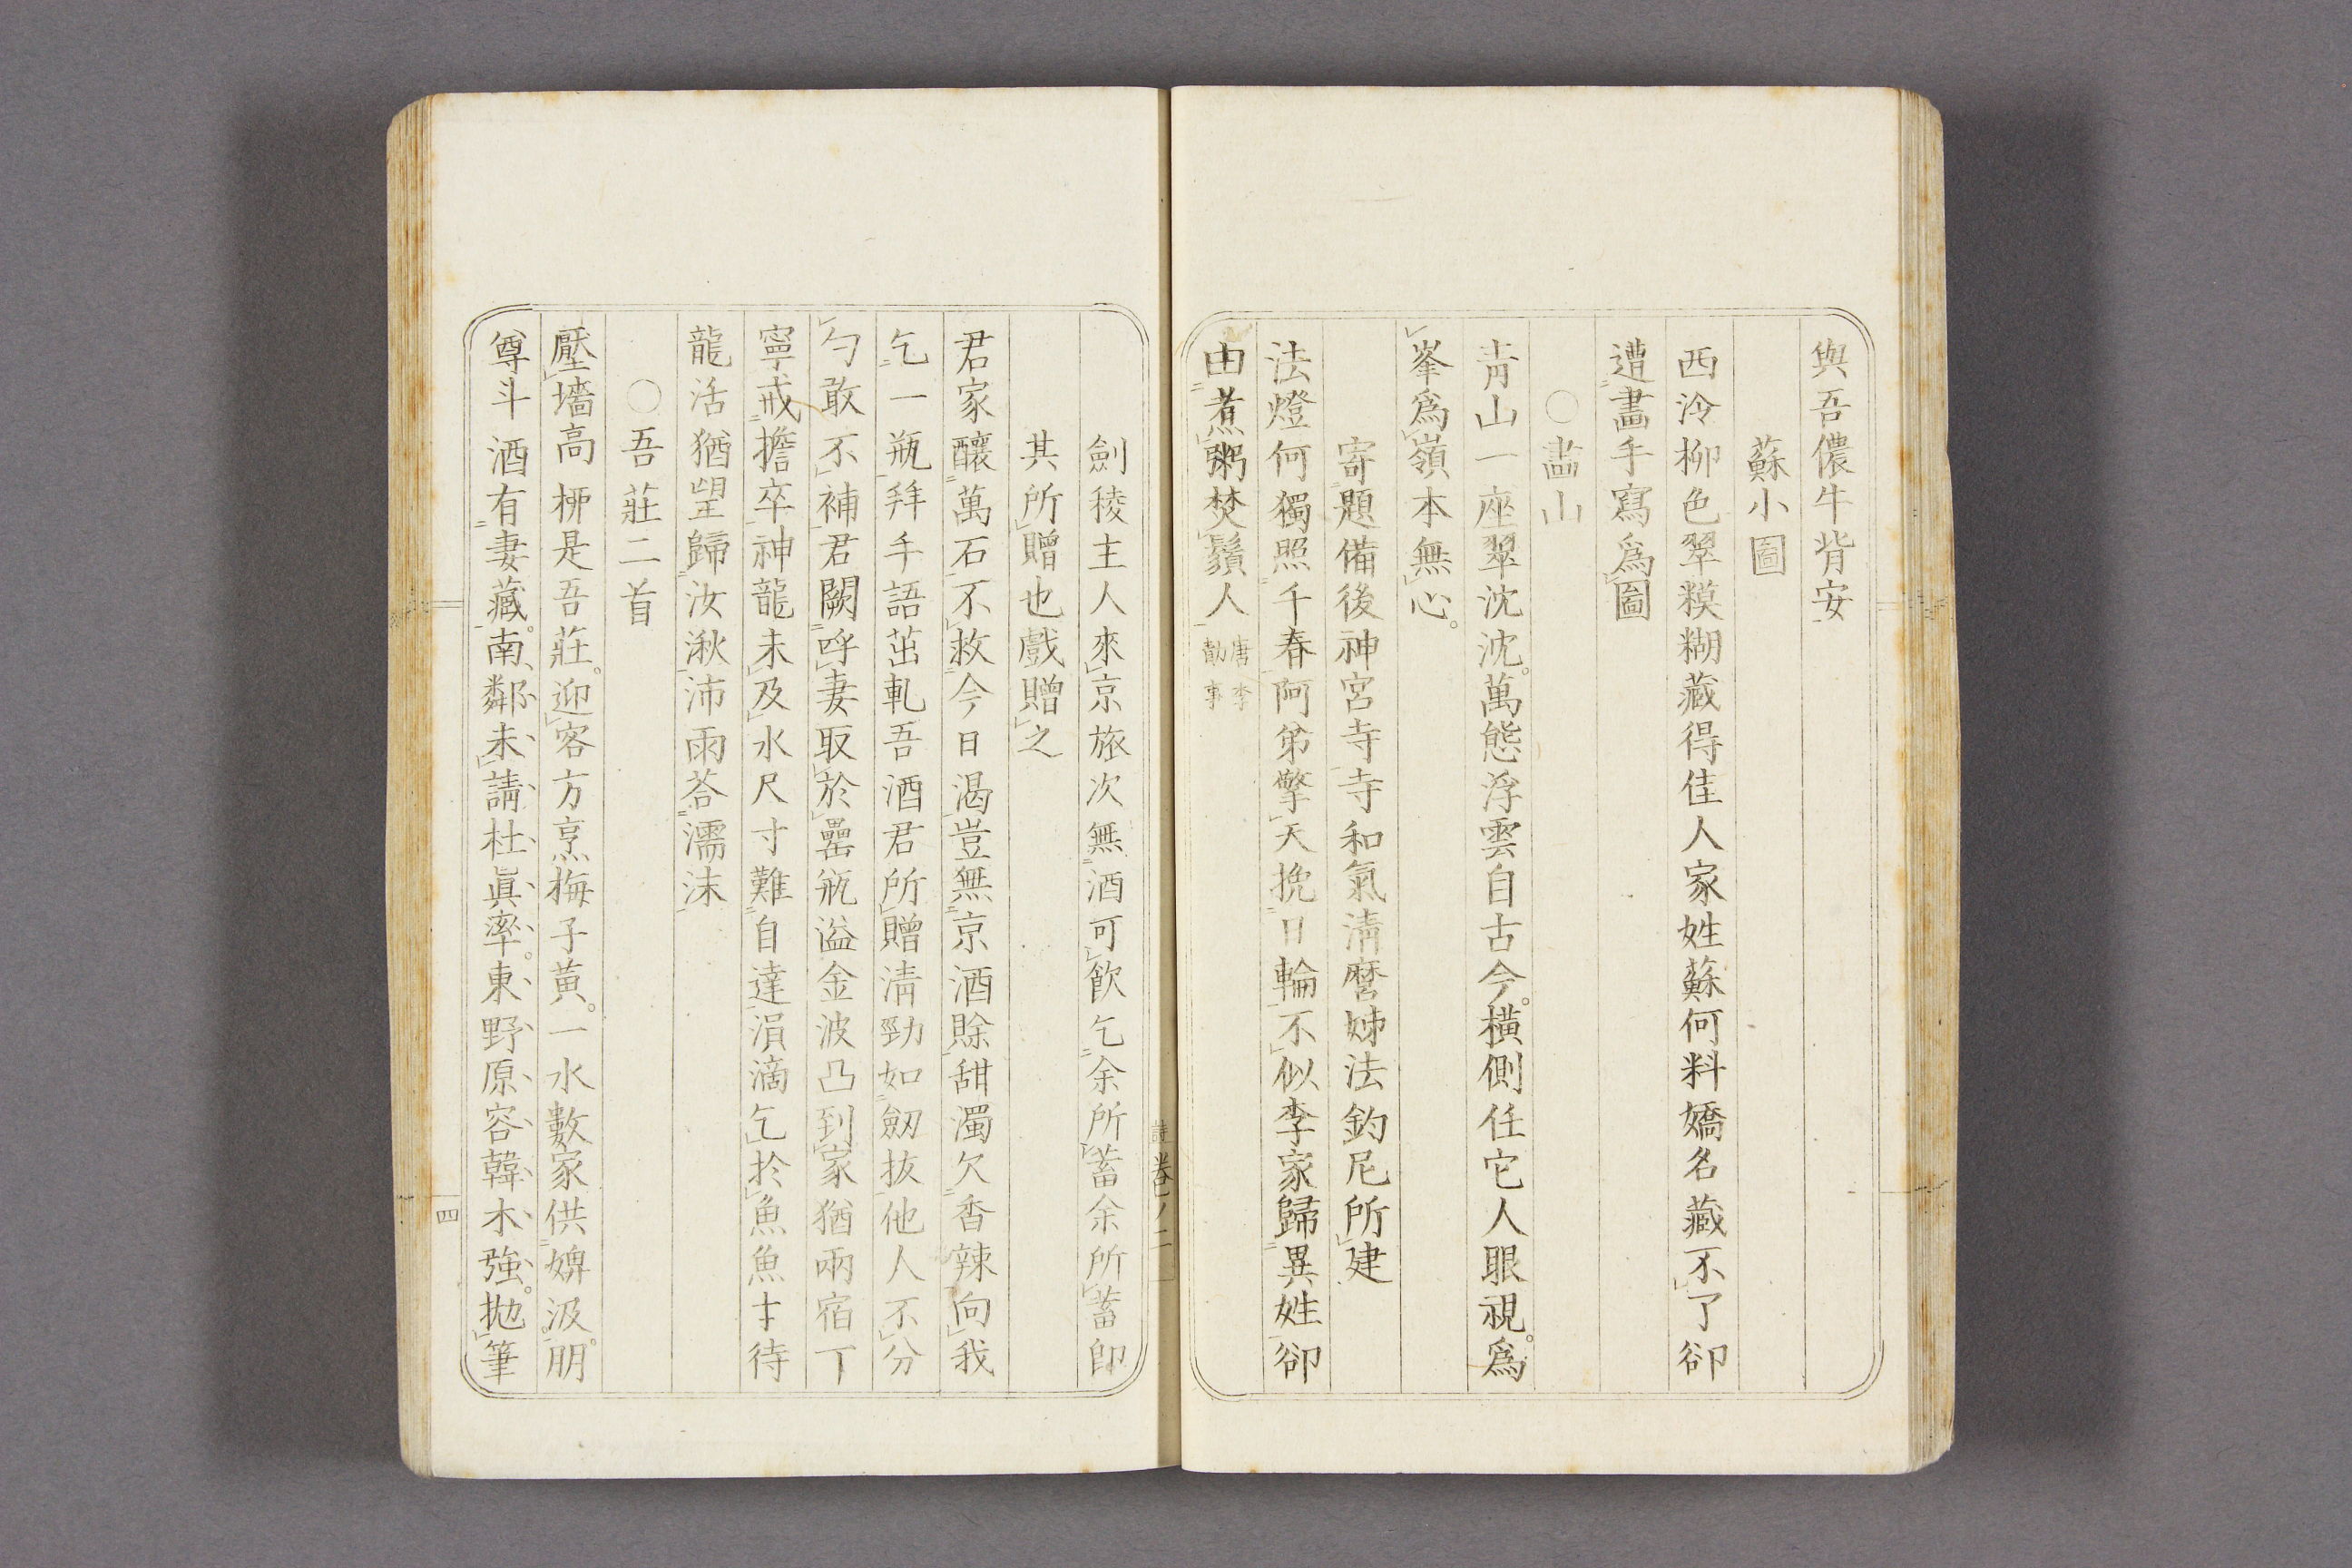 與吾儂牛背安
蘇小圖
西泠柳色翠糢糊藏得佳人家姓蘇何料嬌名藏不了卻
遭畵手寫爲圖
〇畵山
靑山一座翠沈沈。萬態浮雲自古今。橫側任它人眼視。爲
峯爲嶺本無心。
寄題備後神宮寺寺和氣淸麿姊法釣尼所建
法燈何獨照千春阿弟擎天挽日輪不似李家歸異姓卻
由煮粥焚鬚人唐李勣事
劍稜主人來京旅次無酒可飮乞余所蓄余所蓄卽
其所贈也戲贈之
君家釀萬石不救今日渴豈無京酒賖甜濁欠香辣向我
乞一瓶拜手語茁軋吾酒君所贈淸勁如劒拔他人不分
勺敢不補君闕呼妻取於罍瓶溢金波凸到家猶兩宿丁
寧戒擔卒神龍未及水尺寸難自達涓滴乞於魚魚才待
龍活猶望歸汝湫沛雨荅濡沫
〇吾莊二首
壓墻高桺是吾莊。迎客方烹梅子黃。一水數家供婢汲。朋
尊斗酒有妻藏。南鄰未請杜眞率。東野原容韓木強。拋筆
詩 卷ノ二
四